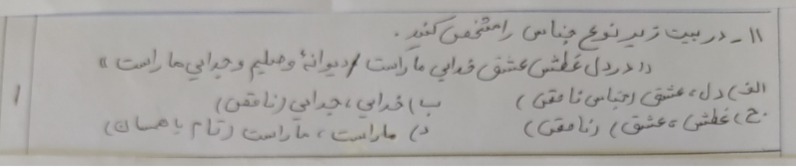 ۱۱ - در بیت زیر نوع جناس را مشخص کنید.
«در دل عطش عشق خدایی ما راست / دیوانهٔ وصلیم و جدایی ما راست»
الف) دل، عشق (جناس ناقص)    ب) خدایی، جدایی (ناقص)
ج) عطش، عشق (ناقص)    د) ماراست، ماراست (تام یا همسان)
۱